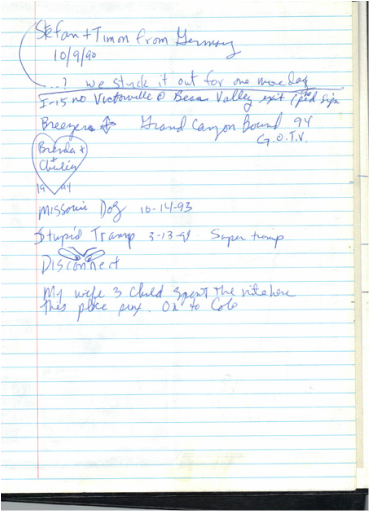 Stefan + Timon from Germany
10/9/90
...? we stuck it out for one more day
I-15 no Victorville @ Bear Valley exit
Breezers Grand Canyon Bound 94
G.O.T.V.
Brenda +
Charlie
19 94
Missouri Dog 10-14-93
Stupid Tramp 3-13-91 Super tramp
Disconnect
My wife 3 child spent the nite here
this place sux. On to Colo